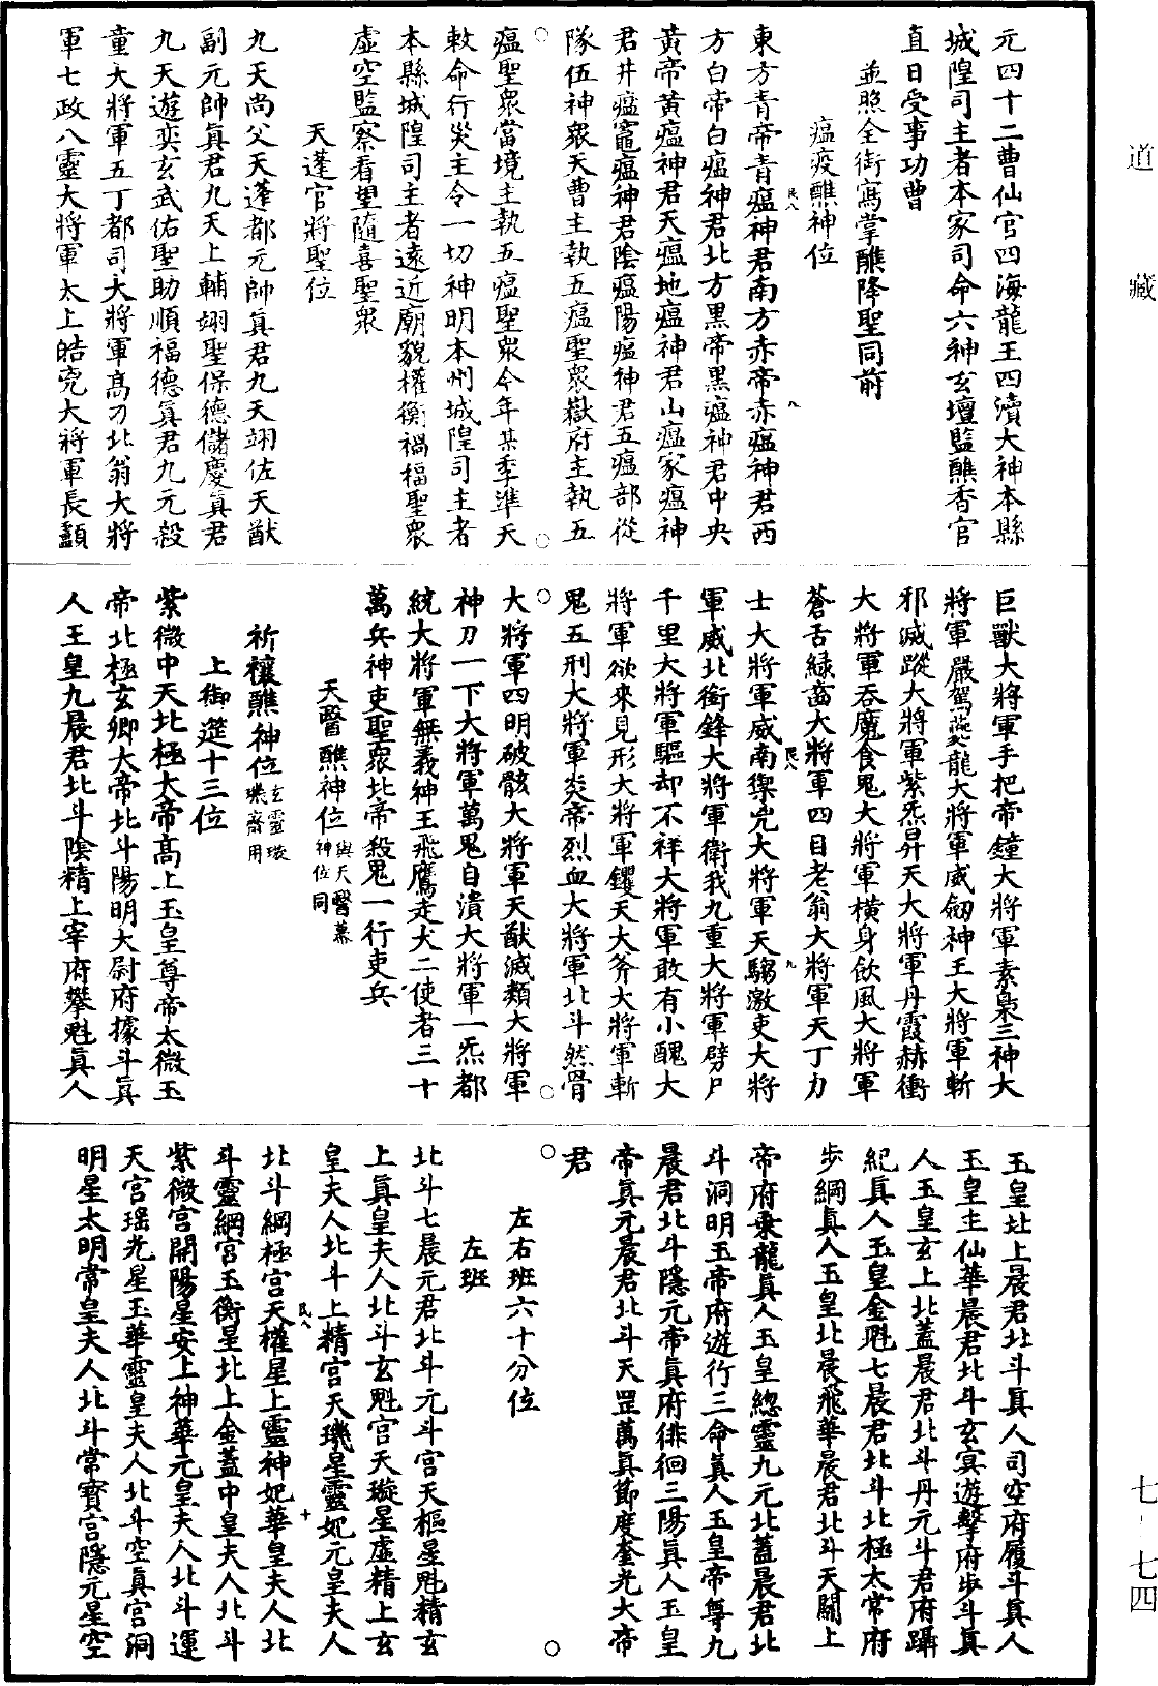 道藏
七-七四
元四十二曹仙官四海龍王四瀆大神本縣
城隍司主者本家司命六神玄壇監醮香官
直日受事功曹
並照全銜寫掌醮降聖同前
瘟疫醮神位
東方青帝青瘟神君南方赤帝赤瘟神君西
方白帝白瘟神君北方黑帝黑瘟神君中央
黃帝黃瘟神君天瘟地瘟神君山瘟家瘟神
君井瘟竈瘟神君陰瘟陽瘟神君五瘟部從
隊伍神衆天曹主執五瘟聖衆嶽府主執五
瘟聖衆當境主執五瘟聖衆今年某季準天
敕命行災主令一切神明本州城隍司主者
本縣城隍司主者遠近廟貌權衡禍福聖衆
虛空監察看望隨喜聖衆
天蓬官將聖位
九天尚父天蓬都元帥眞君九天翊佐天猷
副元帥眞君九天上輔翊聖保德儲慶眞君
九天遊奕玄武佑聖助順福德眞君九元殺
童大將軍五丁都司大將軍高刁北翁大將
軍七政八靈大將軍太上皓兇大將軍長顱
巨獸大將軍手把帝鐘大將軍素梟三神大
將軍嚴駕夔龍大將軍威劒神王大將軍斬
邪滅蹤大將軍紫炁昇天大將軍丹霞赫衝
大將軍吞魔食鬼大將軍橫身飲風大將軍
蒼舌緑齒大將軍四目老翁大將軍天丁力
士大將軍威南禦兇大將軍天騶激吏大將
軍威北銜鋒大將軍衛我九重大將軍劈尸
千里大將軍驅却不祥大將軍敢有小醜大
將軍欲來見形大將軍钁天大斧大將軍斬
鬼五刑大將軍炎帝烈血大將軍北斗然骨
大將軍四明破骸大將軍天猷滅類大將軍
神刀一下大將軍萬鬼自潰大將軍一炁都
統大將軍無義神王飛鷹走犬二使者三十
萬兵神吏聖衆北帝殺鬼一行吏兵
天醫醮神位與天醫幕神位同
祈禳醮神位玄靈璇璣齋用
上御筵十三位
紫微中天北極大帝高上玉皇尊帝太微玉
帝北極玄卿大帝北斗陽明大尉府據斗眞
人王皇九晨君北斗陰精上宰府攀魁眞人
玉皇北上晨君北斗眞人司空府履斗眞人
玉皇主仙華晨君北斗玄冥遊擊府步斗眞
人玉皇玄上北蓋晨君北斗丹元斗君府躡
紀眞人玉皇金魁七晨君北斗北極太常府
步綱眞人玉皇北晨飛華晨君北斗天關上
帝府乘龍眞人玉皇總靈九元北蓋晨君北
斗洞明玉帝府遊行三命眞人玉皇帝尊九
晨君北斗隱元帝眞府徘徊三陽眞人玉皇
帝眞元晨君北斗天罡萬眞節度奎光大帝
君
左右班六十分位
左班
北斗七晨元君北斗元斗宮天樞星魁精玄
上眞皇夫人北斗玄魁宮天璇星虛精上玄
皇夫人北斗上精宮天璣星靈妃元皇夫人
北斗綱極宮天權星上靈神妃華皇夫人北
斗靈綱宮玉衡星北上金蓋中皇夫人北斗
紫微宮開陽星安上神華元皇夫人北斗運
天宮瑤光星玉華靈皇夫人北斗空眞宮洞
明星太明常皇夫人北斗常寳宮隱元星空